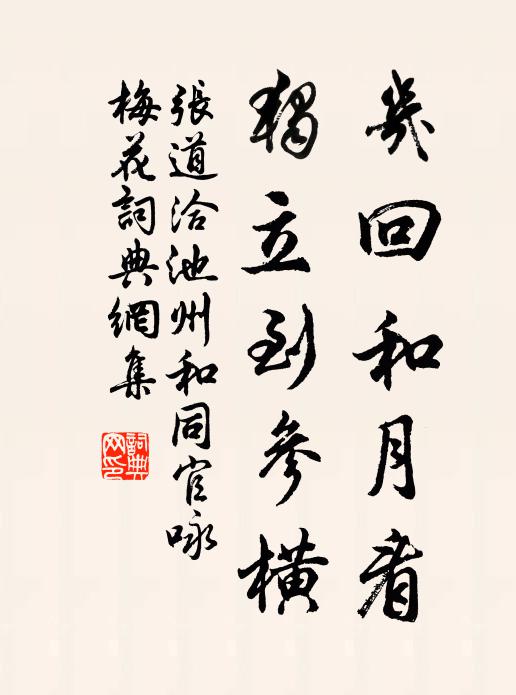 幾回和月看
獨立到參橫
張道洽池州和同官咏
梅花詞典網集
詞典
网印